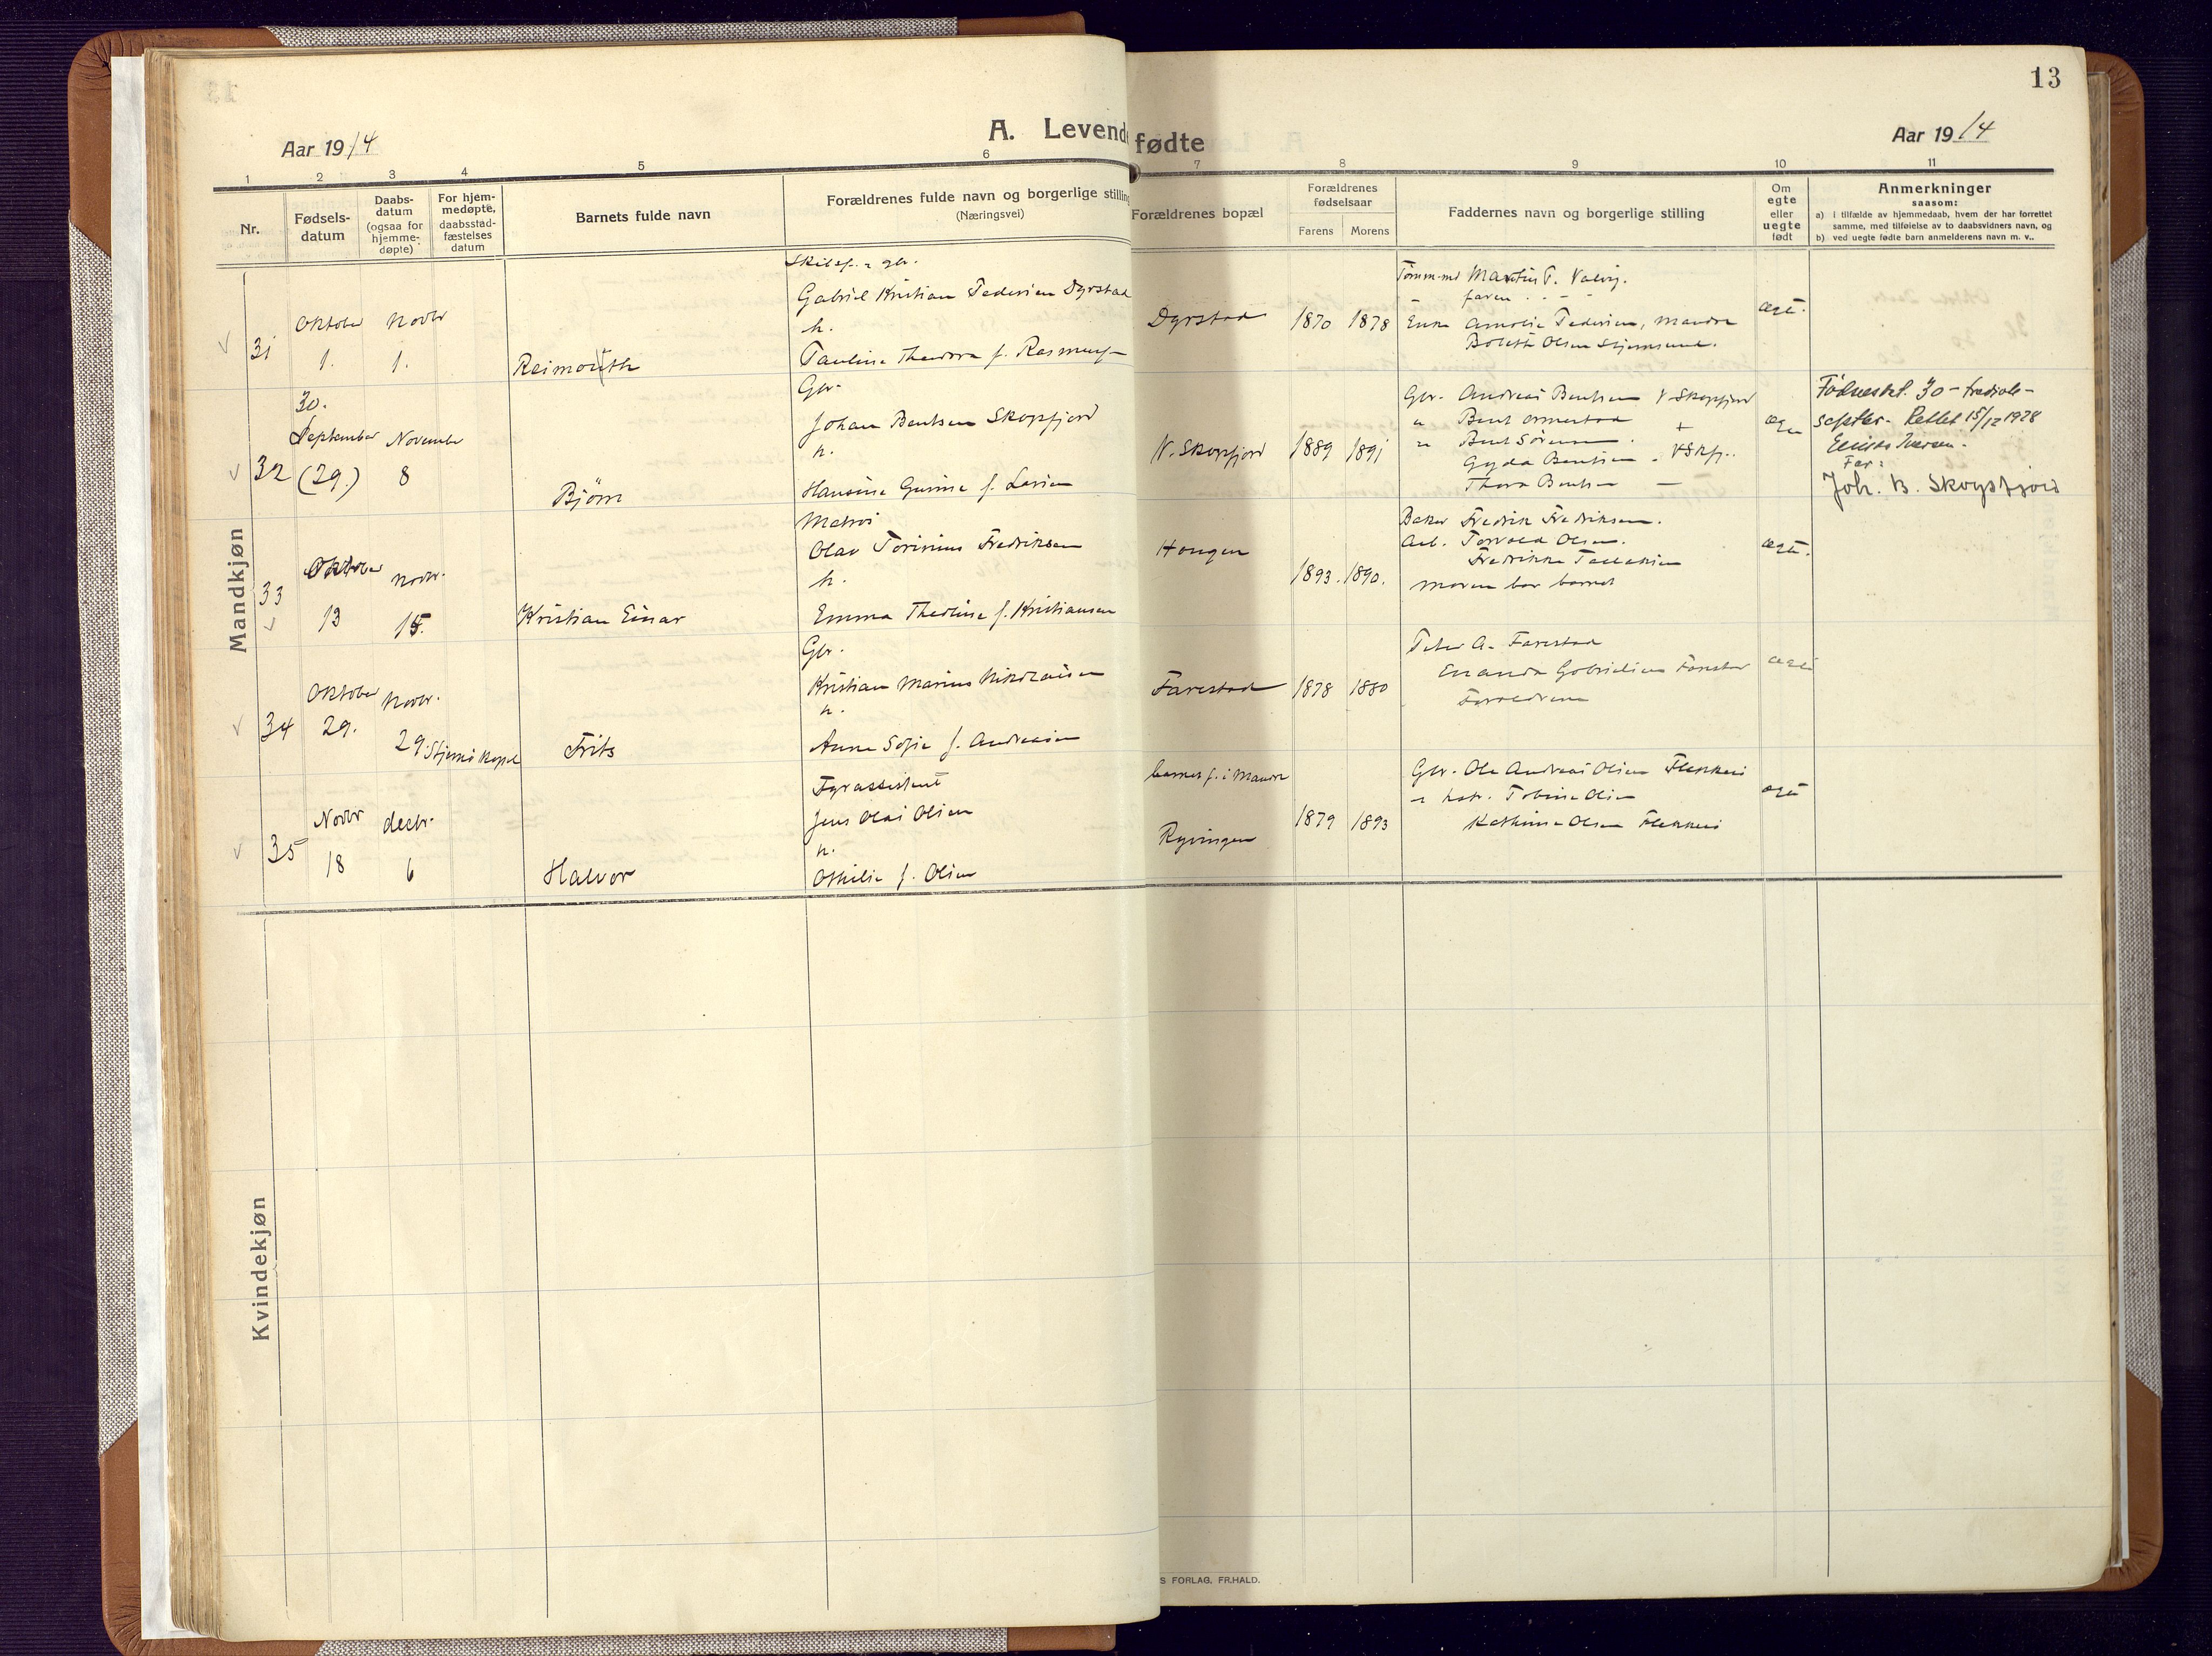 13
Aar 1914
A. Levende
fødte
Aar 1914
1 2 3 4 5 6 7 8 9 10 11
Nr.
Fødsels-
datum
Daabs-
datum
(ogsaa for
hjemme-
døpte)
For hjem-
medøpte,
daabsstad-
fæstelses
datum
Barnets fulde navn
Forældrenes fulde navn og borgerlige stilling
(Næringsvei)
Forældrenes bopæl
Forældrenes
fødselsaar
Farens
Morens
Faddernes navn og borgerlige stilling
Om
egte
eller
uegte
født
Anmerkninger
saasom:
a) i tilfælde av hjemmedaab, hvem der har forrettet
samme, med tilføielse av to daabsvidners navn, og
b) ved uegte fødte barn anmelderens navn m. v..
Mandkjøn
31
Oktober
1.
Novbr
1.
Reimouth
Gabriel Kristian Pedersen Dyrstad
h.
Pauline Theodora f. Rasmuss
Dyrstad
1870 1878
Martin T. Valvig.
faren
Enke Amalie Pedersen, Mandal
Bolette Olsen Stjernsund.
ægte.
32
30.
September
(29.)
November
8
Bjørn
Gbr.
Johan Bentsen Skogsfjord
h.
Hansine Gurine f. Larsen
V. Skogsfjord
1889 1891
Gbr. Andreas Bentsen V. Skogsfjord
Bent Ormestad
Bent Sørensen
Gyda Bentsen
Thora Bentsen
Fødselsdat. 30 -
septbr. Rettet 15/12 1928
Iversen.
Far:
Joh. B. Skogsfjord
33
Oktober
13
Novbr.
15.
Kristian Einar
Matros
Olav Torinius Fredriksen
h.
Emma Thedine f. Kristiansen
Hougen
1893. 1890.
Baker Fredrik Fredriksen.
Arb. Torvald Olsen.
Fredrikke
moren bar barnet
ægte.
34
Oktober
29.
Novbr.
29.
Frits
Gbr.
Kristian Marius Nikolaisen
h.
Anne Sofie f. Andreasen
Farestad
1878 1880
Peter A. Farestad
Gabrielsen Farestad
Forældrene
ægte
35
Novbr
18
decbr.
6
Halvor
Fyrassistent
Jens Olai Olsen
h.
Othilie f. Olsen
barnet f. i Mandal
Ryvingen
1879 1893
Gbr. Ole Andreas Olsen Flekkerø
Tobine Olsen
Kathinse Olsen Flekkerø
ægte
Kvindekjøn
S FORLAG, FR.HALD.